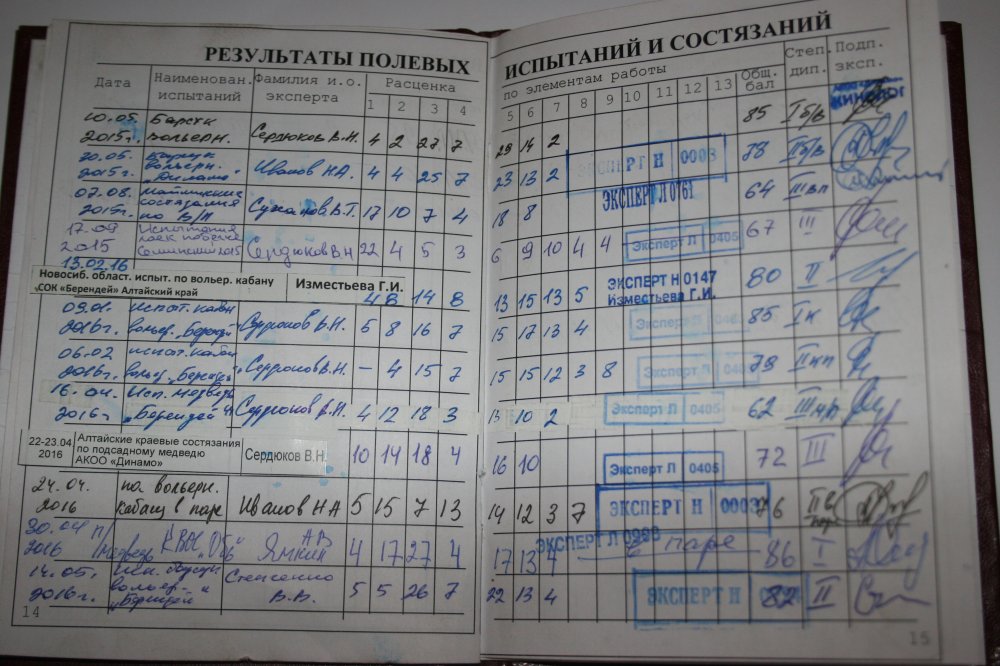 РЕЗУЛЬТАТЫ ПОЛЕВЫХ ИСПЫТАНИЙ И СОСТЯЗАНИЙ
Дата Наименован. испытаний Фамилия и.о. эксперта Расценка по элементам работы Общ. бал Степ. дип. Подп. эксп.
1 2 3 4 5 6 7 8 9 10 11 12 13
10.05. 2015г. Барсук вольерн. Сердюков В.Н. 4 2 27 7 29 14 2 85 I б/в
КИНОЛОГ
2015г. вольерн. "Динамо" Иванов Н.А. 4 4 25 7 23 13 2 78 II б/в
ЭКСПЕРТ Н 0003
07.08. 2015г. состязания по В/П Суханов В.Т. 17 10 7 4 18 8 64 III вп
ЭКСПЕРТ Л 0761
17.09 2015 Испытания Сердюков В.Н 22 4 5 3 6 9 10 4 4 67 III
Эксперт Л 0405
13.02.16
Новосиб. област. испыт. по вольер. кабану
СОК «Берендей» Алтайский край
Изместьева Г.И. 4 8 14 8 13 15 13 5 80 II
ЭКСПЕРТ Н 0147
Изместьева Г.И.
2016г. вольер. "Берендей" Сердюков В.Н. 5 8 16 7 15 17 13 4 85 I к
Эксперт Л
06.02 2016г. испыт. кабан вольер. "Берендей" Сердюков В.Н. – 4 15 7 15 15 12 3 8 79 II кп
Эксперт Л
16.04. 2016г Исп. медведь "Берендей" Сердюков В.Н. 4 12 18 3 13 10 2 62 III
Эксперт Л 0405
22-23.04 2016 Алтайские краевые состязания
по подсадному медведю
АКОО «Динамо»
Сердюков В.Н. 10 14 18 4 16 10 72 III
Эксперт Л 0405
24.04. 2016 по вольерн. кабану в паре Иванов Н А 5 15 7 13 14 12 3 7 76 II в паре
ЭКСПЕРТ Н 0003
30.04 2016 п/медведь КВОС "Обь" Ямкин А В 4 17 27 4 17 13 4 – в паре 86 I
14.05. 2016г. вольер. "Берендей" Степенко В.В. 5 5 26 7 22 13 4 82 II
ЭКСПЕРТ Н
14
15